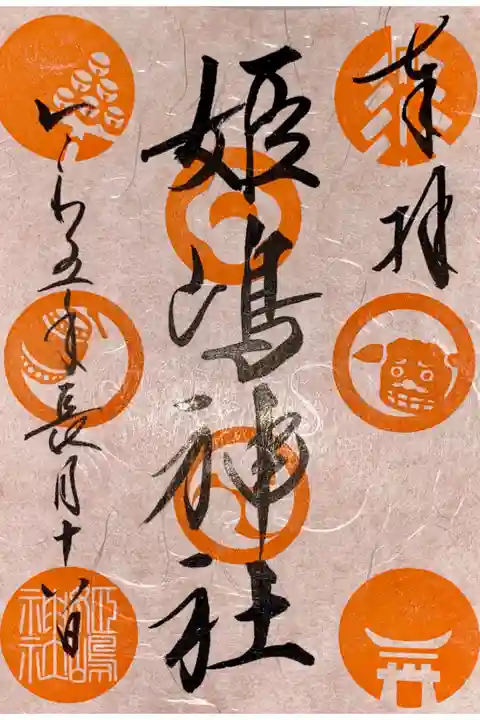 奉拝
姫嶋神社
令和五年長月十八日
姫嶋神社